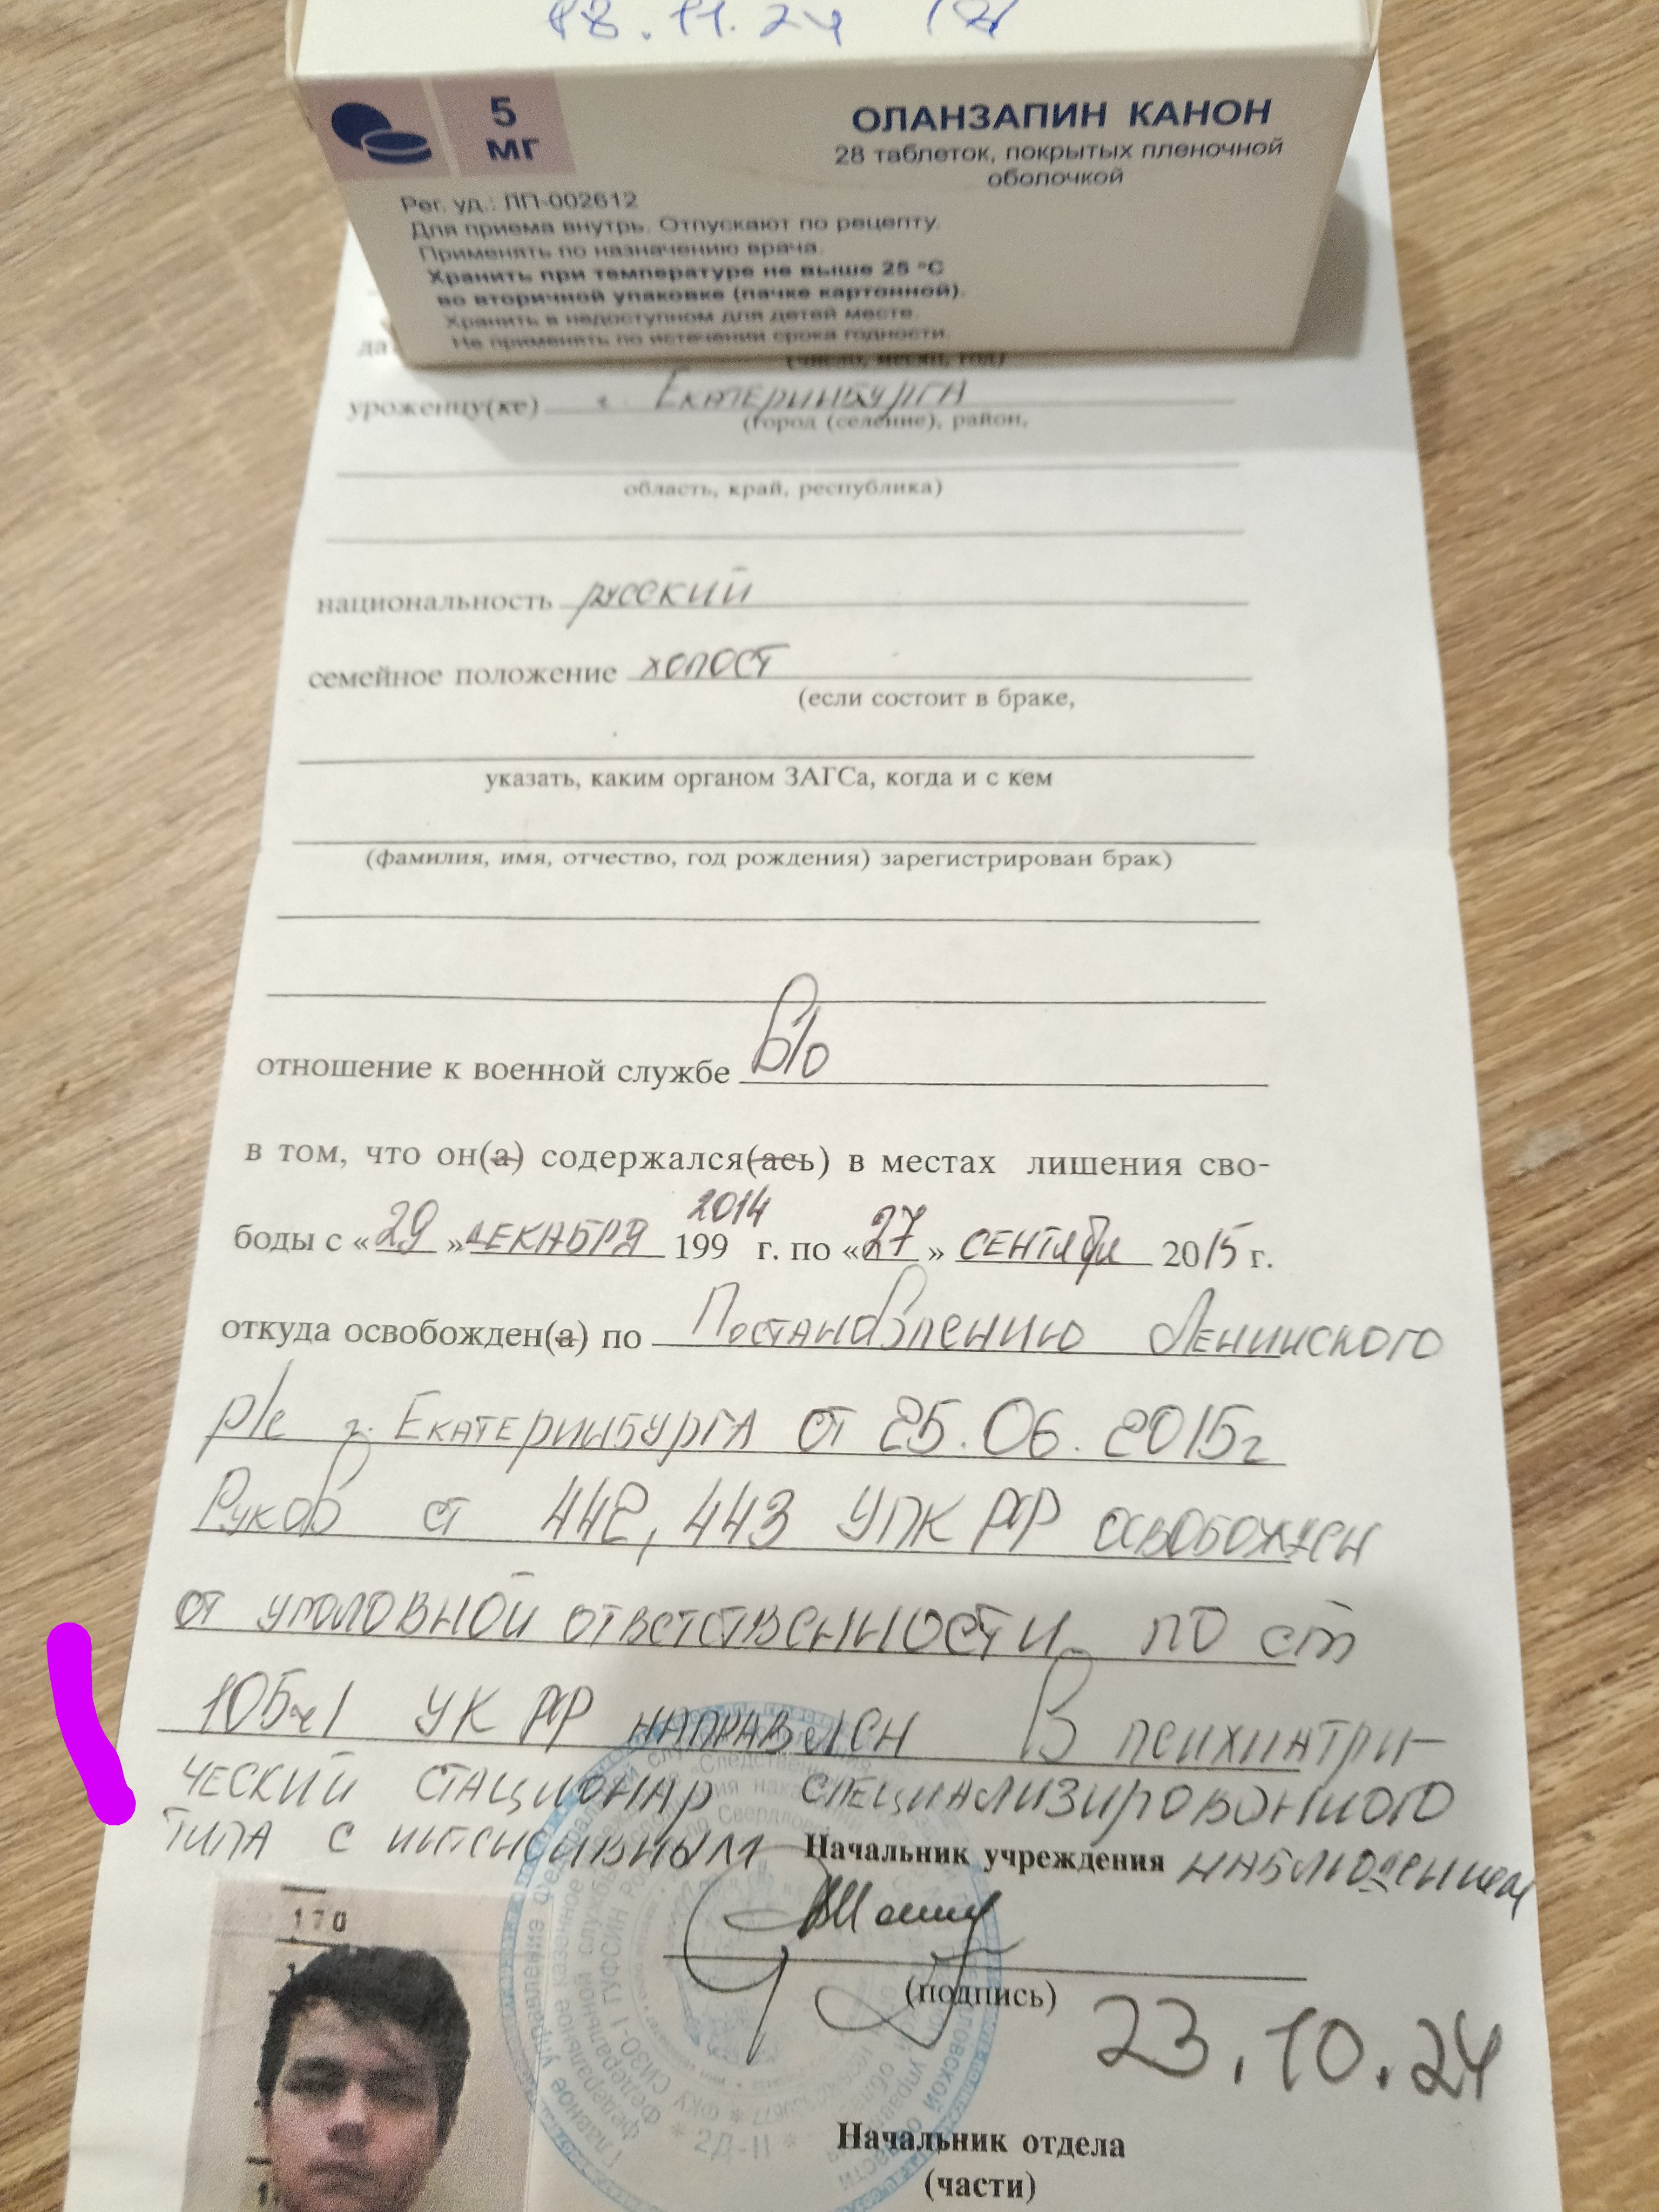 18.11.24
5
мг
ОЛАНЗАПИН КАНОН
28 таблеток, покрытых пленочной
оболочкой
Рег. уд.: ЛП-002612
Для приема внутрь. Отпускают по рецепту.
Применять по назначению врача.
Хранить при температуре не выше 25 °С
во вторичной упаковке (пачке картонной).
Хранить в недоступном для детей месте.
Не применять по истечении срока годности.
(число, месяц, год)
уроженцу(ке) г. Екатеринбурга
(город (селение), район,
область, край, республика)
национальность русский
семейное положение холост
(если состоит в браке,
указать, каким органом ЗАГСа, когда и с кем
(фамилия, имя, отчество, год рождения) зарегистрирован брак)
отношение к военной службе в/о
в том, что он(а) содержался(ась) в местах лишения сво-
2014
боды с «29» декабря 199 г. по «27» сентября 2015 г.
откуда освобожден(а) по Постановлению Ленинского
р/с г. Екатеринбурга от 25.06.2015г
Руков ст 442, 443 УПК РФ освобожден
от уголовной ответственности по ст
105ч1 УК РФ направлен в психиатри-
ческий стационар специализированного
типа с интенсивным Начальник учреждения наблюдением
170
(подпись)
23.10.24
2Д-11
Начальник отдела
(части)